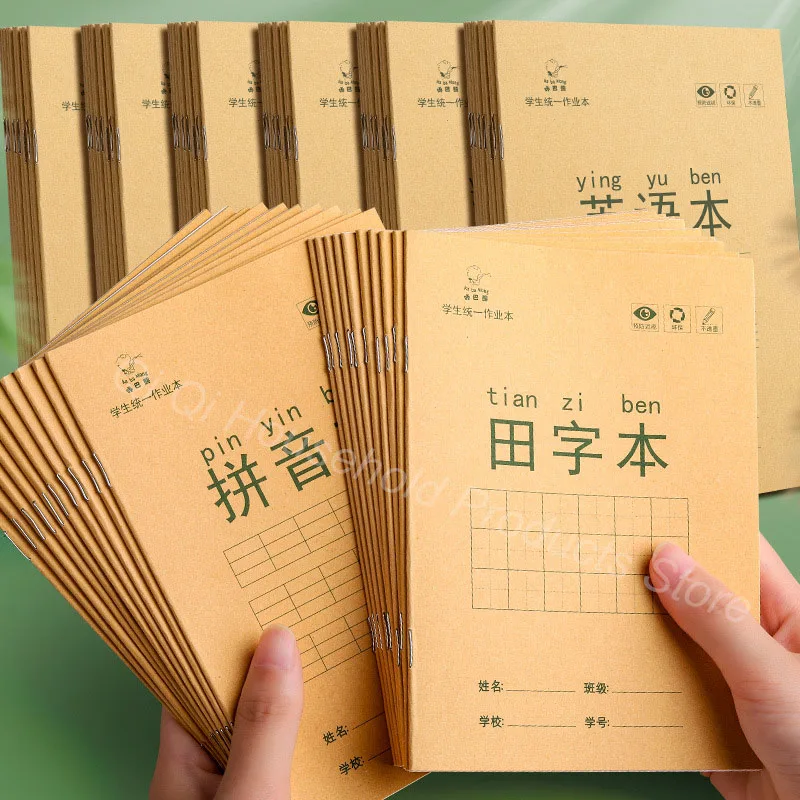 学生统一作业本
学生统一作业本
学生统一作业本
学生统一作业本
学生统一作业本
预防近视 环保 不透墨
ying yu ben
英语本
Ka ba Xiong
学生统一作业本
预防近视 环保 不透墨
tian zi ben
田字本
姓名: 班级:
学校: 学号:
学生统一作业本
pin yin b
拼音
姓名:
学校:
Qi Household Products Store